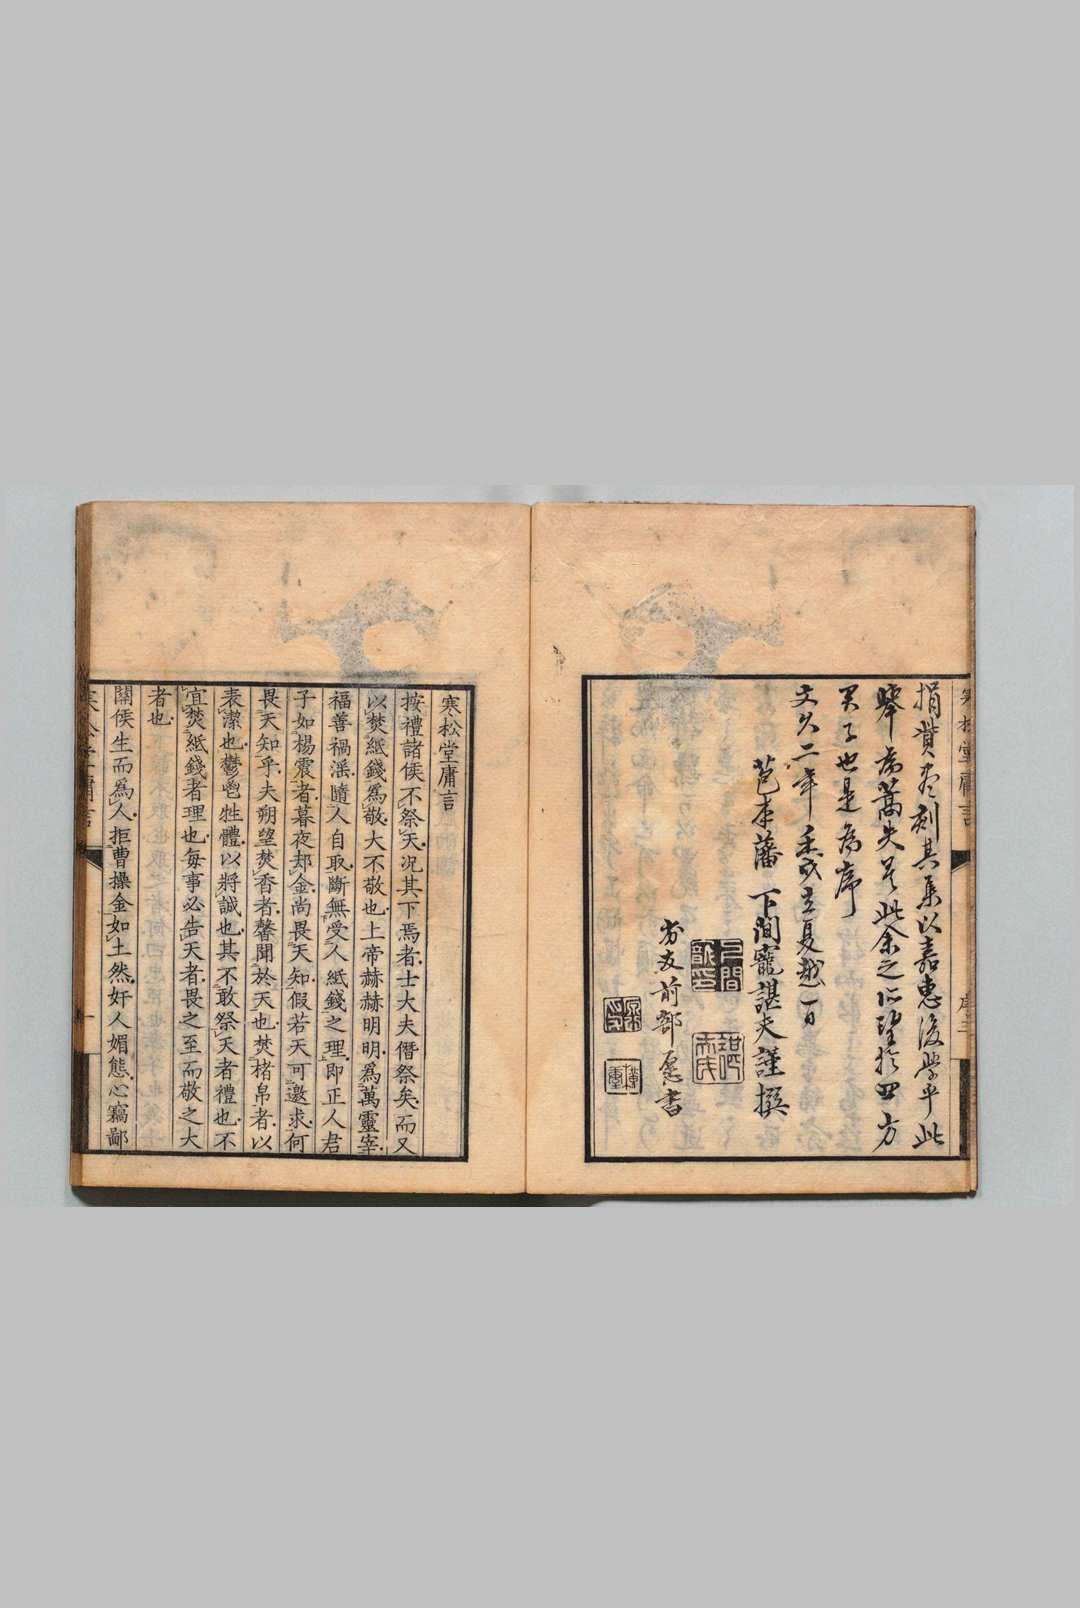 捐貲盡刻其集以嘉惠後學乎此
舉為嚆矢是此余之所望於四方
君子也是為序
文久二年壬戌立夏越一日
苞本藩 下間寵謀夫謹撰
前部愿書
寒松堂庸言
按禮諸侯不祭天況其下焉者士大夫僭祭矣而又
以焚紙錢為敬大不敬也上帝赫赫明明為萬靈宰
福善禍淫隨人自取斷無受人紙錢之理即正人君
子如楊震者暮夜却金尚畏天知假若天可邀求何
畏天知乎夫朔望焚香者馨聞於天也焚楮帛者以
表潔也鬱鬯牲體以將誠也其不敢祭天者禮也不
宜焚紙錢者理也每事必告天者畏之至而敬之大
者也
關侯生而為人拒曹操金如土然奸人媚態心竊鄙